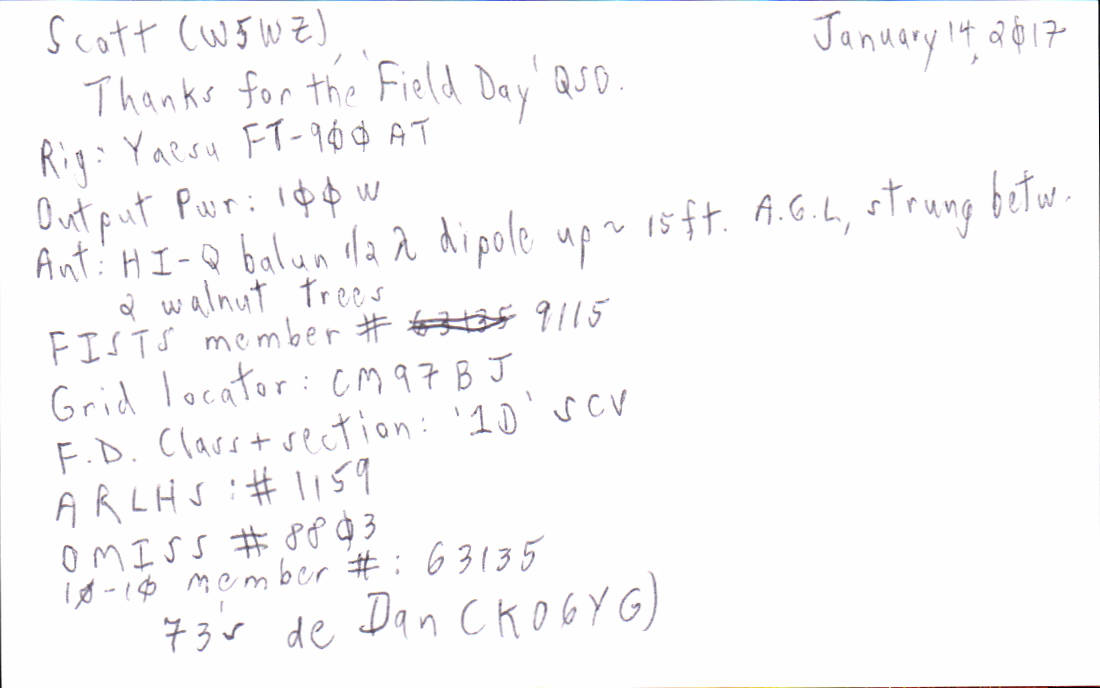 Scott (W5WZ), January 14, 2017
Thanks for the 'Field Day' QSO.
Rig: Yaesu FT-900 AT
Output Pwr: 100 W
Ant: HI-Q balun 1/2 λ dipole up ~ 15 ft. A.G.L, strung betw.
2 walnut trees
FISTS member # 63135 9115
Grid locator: CM97BJ
F.D. Class + section: '1D' SCV
ARLHS: # 1159
OMISS # 8803
10-10 member #: 63135
73's de Dan (KO6YG)